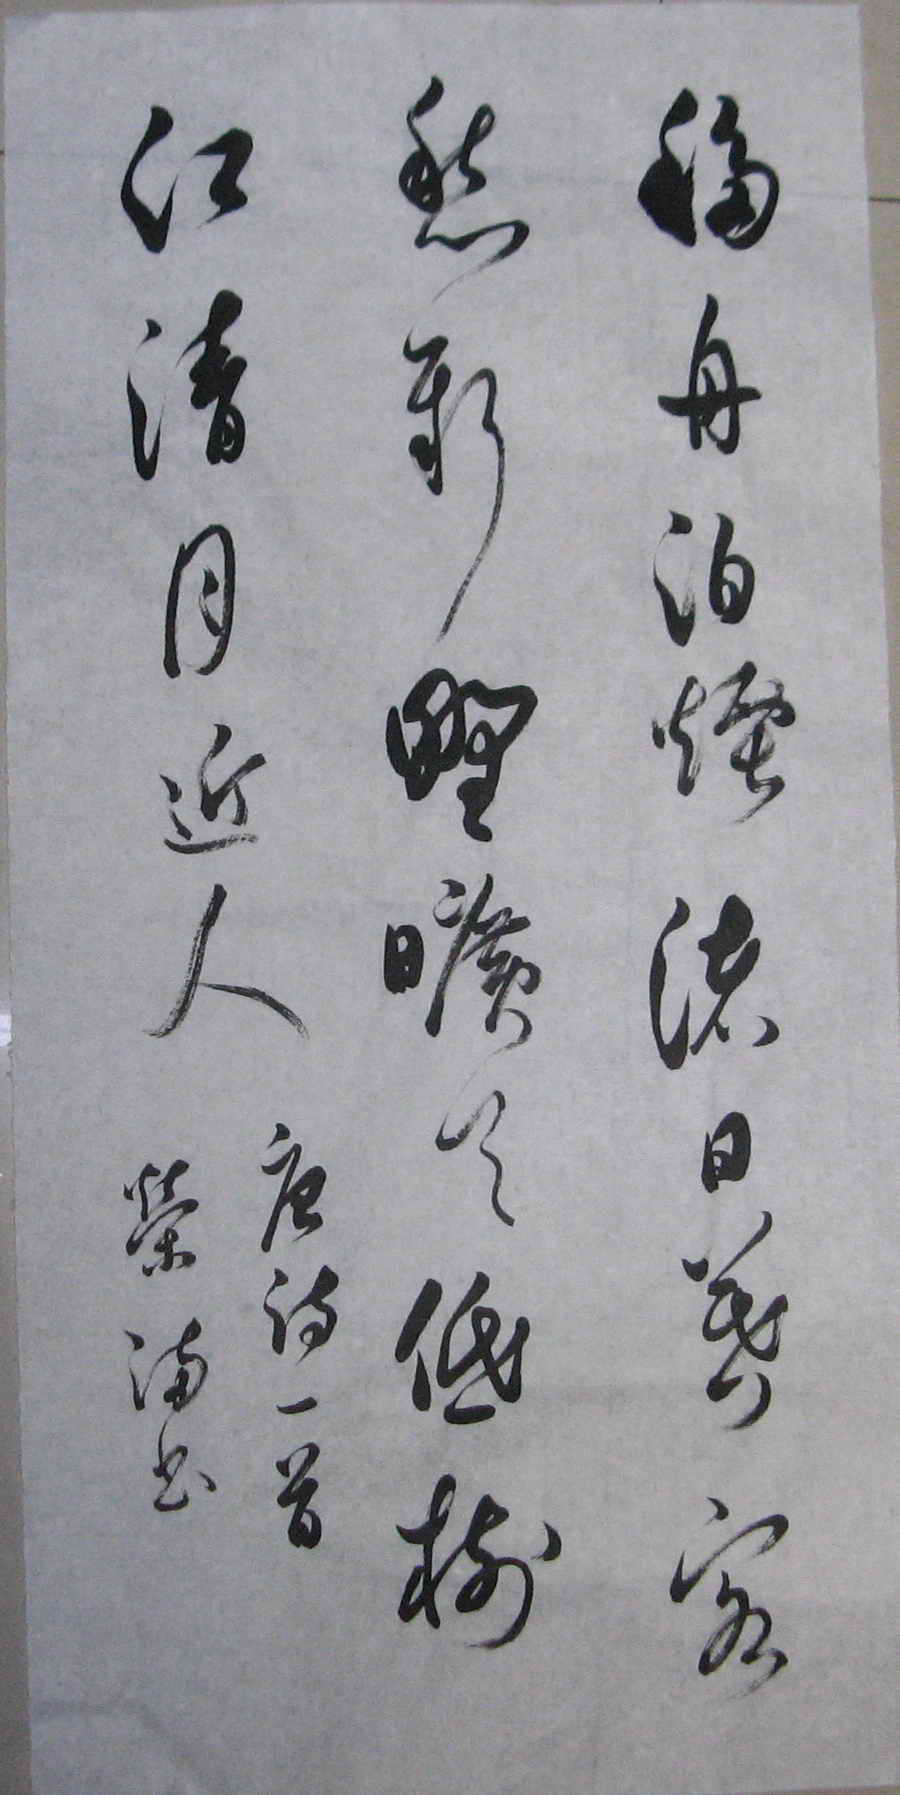 移舟泊煙渚日暮客
愁新野曠天低樹
江清月近人
唐詩一首
榮海书